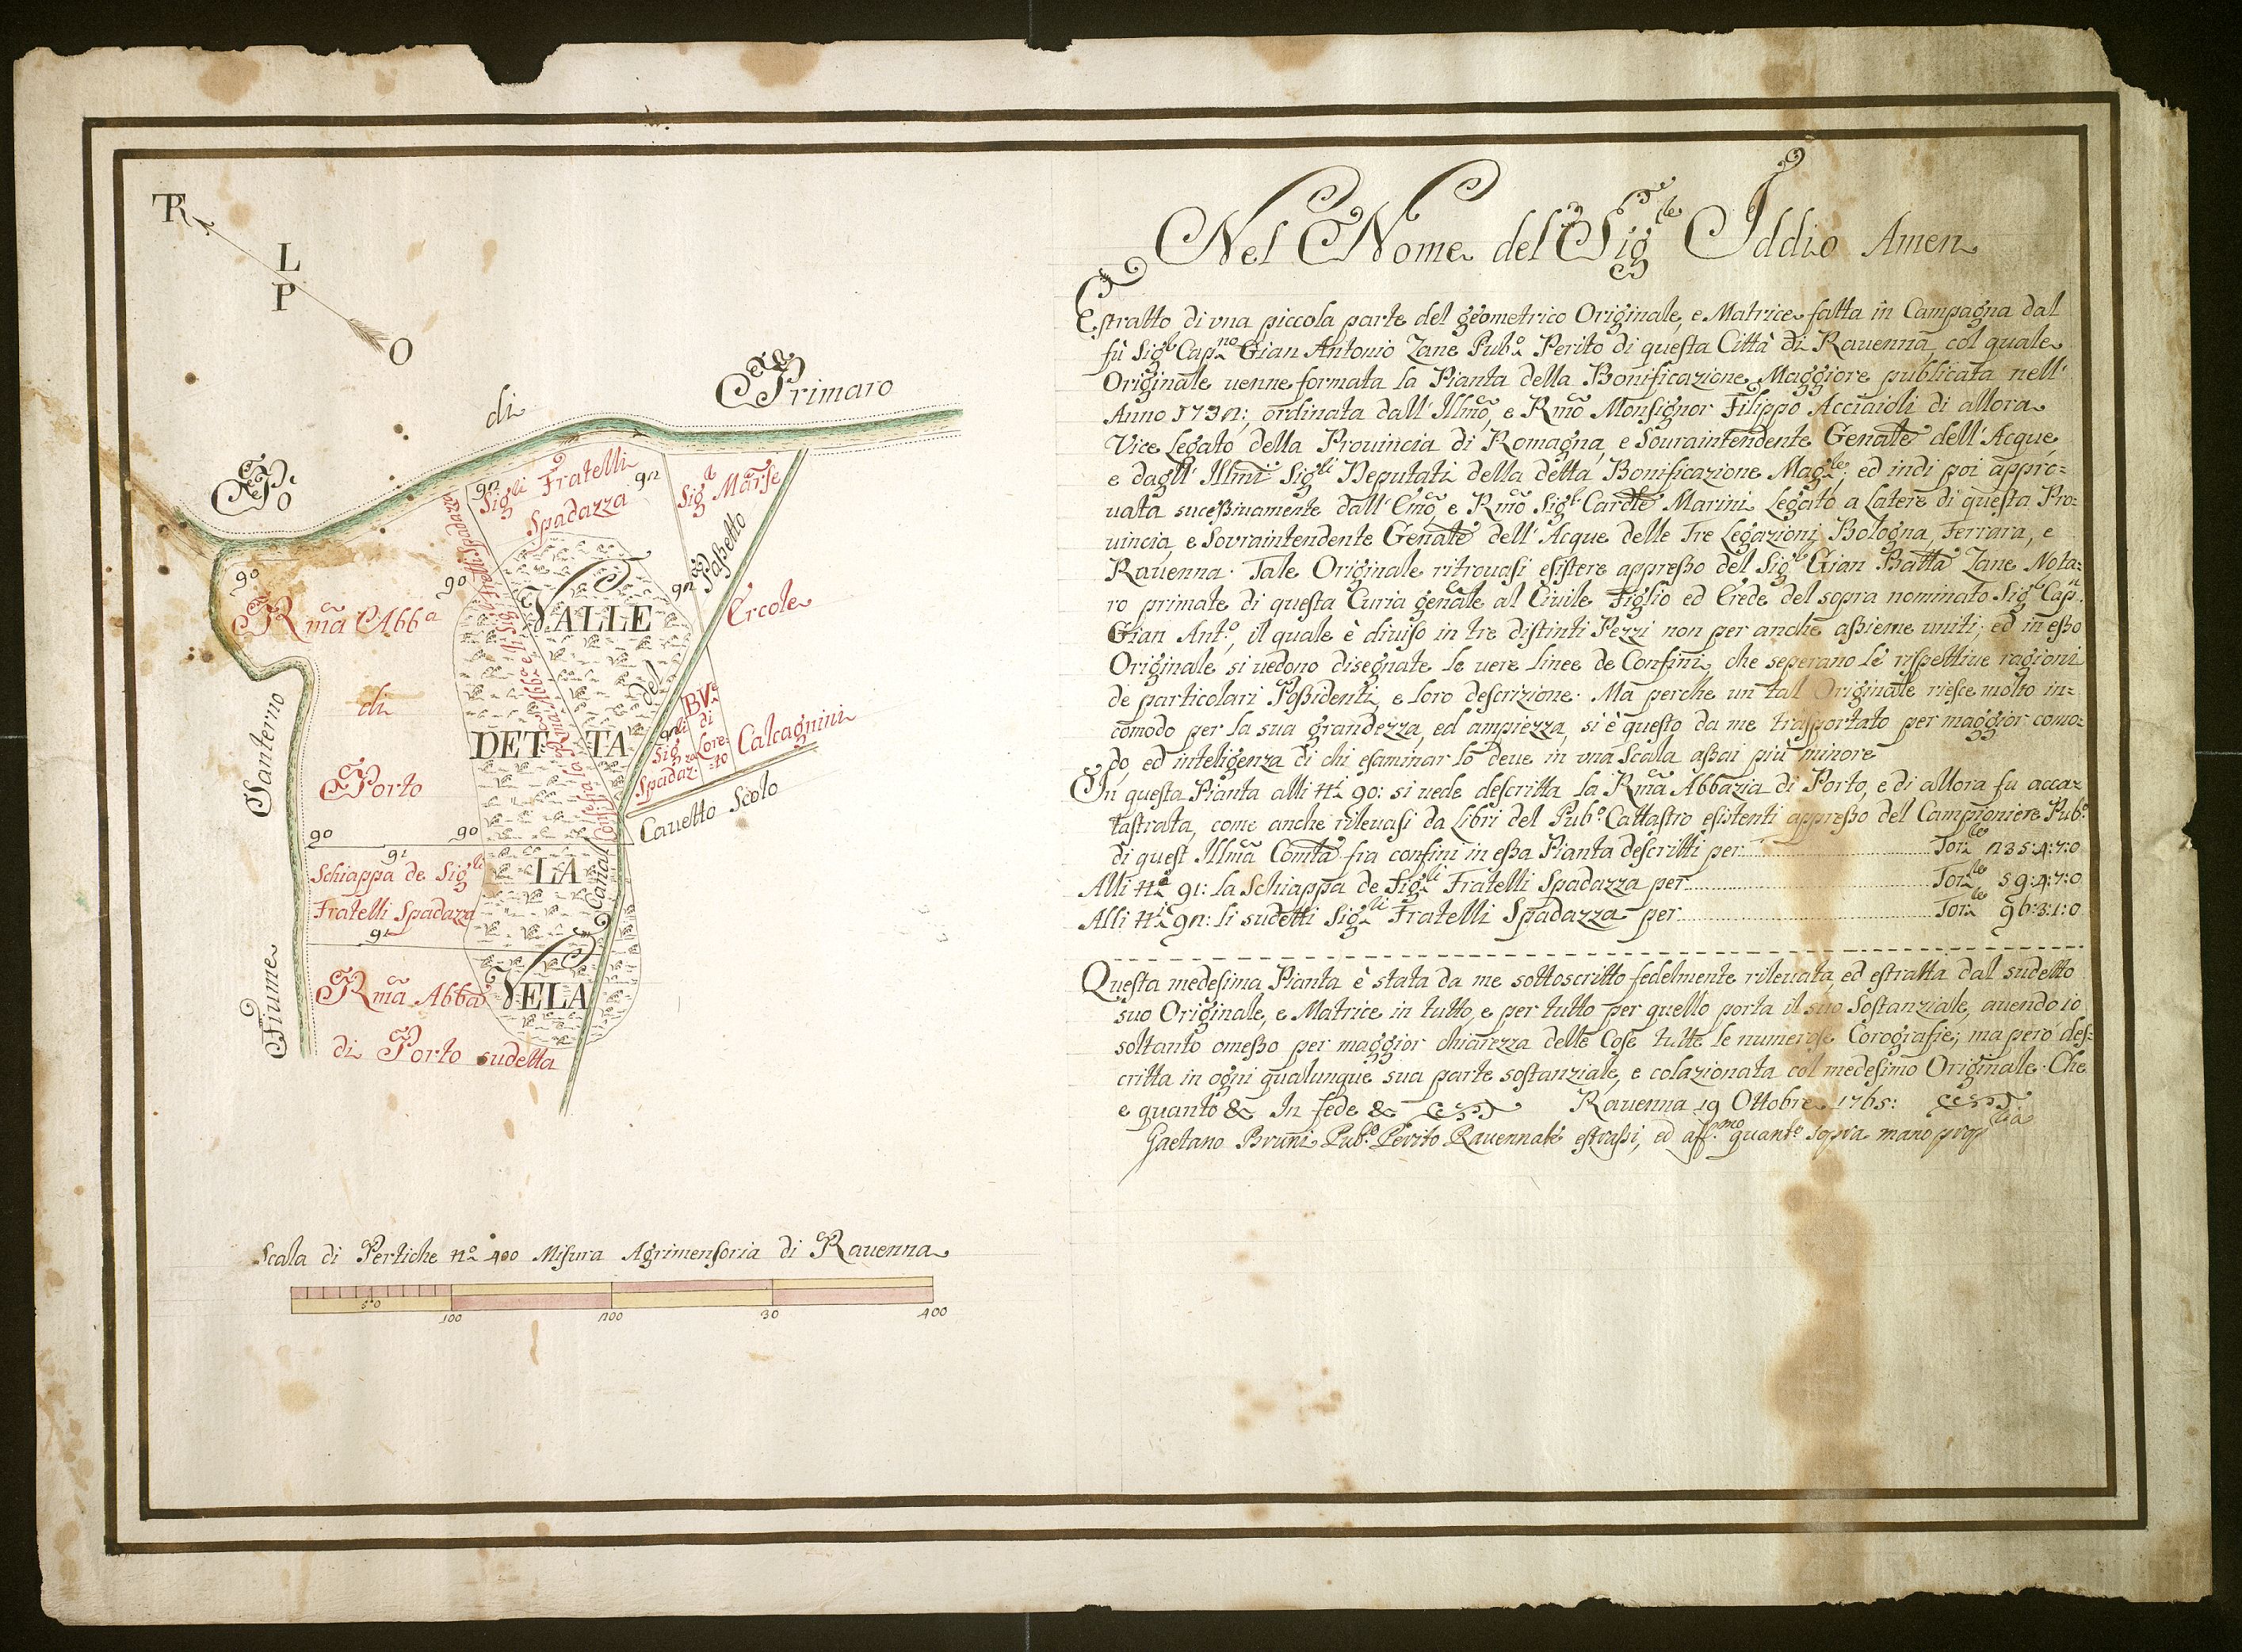 TR
L
P
O
Po
di
Primaro
92
Sigli Fratelli
Spadazza
92
Sigr Marse
Passetto
92
Ercole
90
90
Rma Abba
di
Porto
VALLE
DETTA
LA
VELA
del
Canal
BVe
di
Lore
to
92
Sigli
Spadaz:
za
Calcagnini
Cavetto Scolo
Santerno
Fiume
90
90
91
Schiappa de Sigli
Fratelli Spadazza
91
Rma Abba
di Porto sudetta
Scala di Pertiche No 400 Misura Agrimensoria di Ravenna
50
100
200
30
400
Nel Nome del Sigre Iddio Amen
Estratto di vna piccola parte del geometrico Originale, e Matrice fatta in Campagna dal
fù Sigr Capno Gian Antonio Zane Pubo Perito di questa Città di Ravenna, col quale
Originale uenne formata la Pianta della Bonificazione Maggiore publicata nell'
Anno 1732; ordinata dall'Illmo, e Rmo Monsignor Filippo Acciaioli di allora
Vice Legato della Prouincia di Romagna, e Souraintendente Genale dell'Acque,
e dagl' Illmi Sigli Deputati della detta Bonificazione Magre, ed indi poi appro=
uata sucessiuamente dall'Emo, e Rmo Sigr Cardle Marini Legato a Latere di questa Pro=
uincia, e Sovraintendente Genale dell'Acque delle Tre Legazioni Bologna, Ferrara, e
Rauenna. Tale Originale ritrouasi esistere appresso del Sigr Gian Batta Zane Nota=
ro primate di questa Curia genale al Ciuile Figlio ed Erede del sopra nominato Sigr Capn
Gian Anto, il quale è diuiso in tre distinti Pezzi non per anche assieme uniti; ed in esso
Originale si uedono disegnate le uere linee de Confini, che seperano le rispettiue ragioni
de particolari Possidenti, e loro descrizione. Ma perche un tal Originale riesce molto in=
comodo per la sua grandezza, ed ampiezza, si è questo da me trasportato per maggior como=
do, ed inteligenza di chi esaminar lo deue in vna Scala assai più minore
In questa Pianta alli Ni 90: si uede descritta la Rma Abbazia di Porto, e di allora fu accaz
tastrata, come anche rileuasi da Libri del Pubo Cattastro esistenti appresso del Campioniere Pubo
di quest' Illma Comtà fra confini in essa Pianta descritti per Torle 235:4:7:0
Alli Ni 91: la Schiappa de Sigli Fratelli Spadazza per Torle 59:4:7:0
Alli Ni 92: li sudetti Sigli Fratelli Spadazza per Torle 96:3:1:0
Questa medesima Pianta è stata da me sottoscritto fedelmente rileuata, ed estratta dal sudetto
suo Originale, e Matrice in tutto, e per tutto per quello porta il suo Sostanziale, auendo io
soltanto omesso per maggior chiarezza delle Cose tutte le numerose Corografie; ma però des=
critta in ogni qualunque sua parte sostanziale, e colazionata col medesimo Originale. Che
e quanto &c In fede &c Rauenna 19 Ottobre 1765:
Gaetano Bruni Pubo Perito Rauennate estrassi, ed affmo quanto sopra mano propria